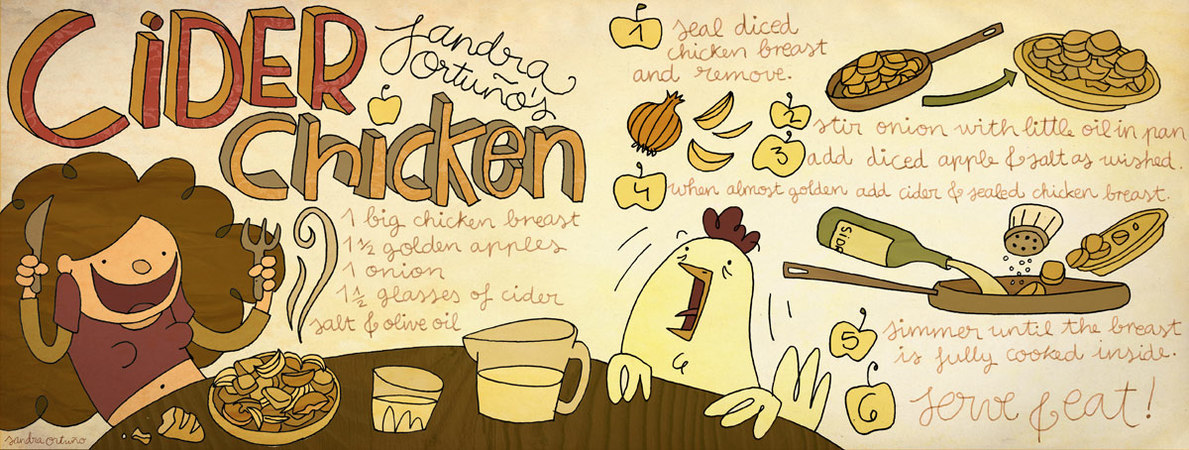 CiDER
Sandra
Ortuño's
chicken
1 big chicken breast
1 ½ golden apples
1 onion
1 ½ glasses of cider
salt & olive oil
1
seal diced
chicken breast
and remove.
2
stir onion with little oil in pan
3
add diced apple & salt as wished.
4
when almost golden add cider & sealed chicken breast.
5
simmer until the breast
is fully cooked inside.
6
serve & eat!
sandra ortuño